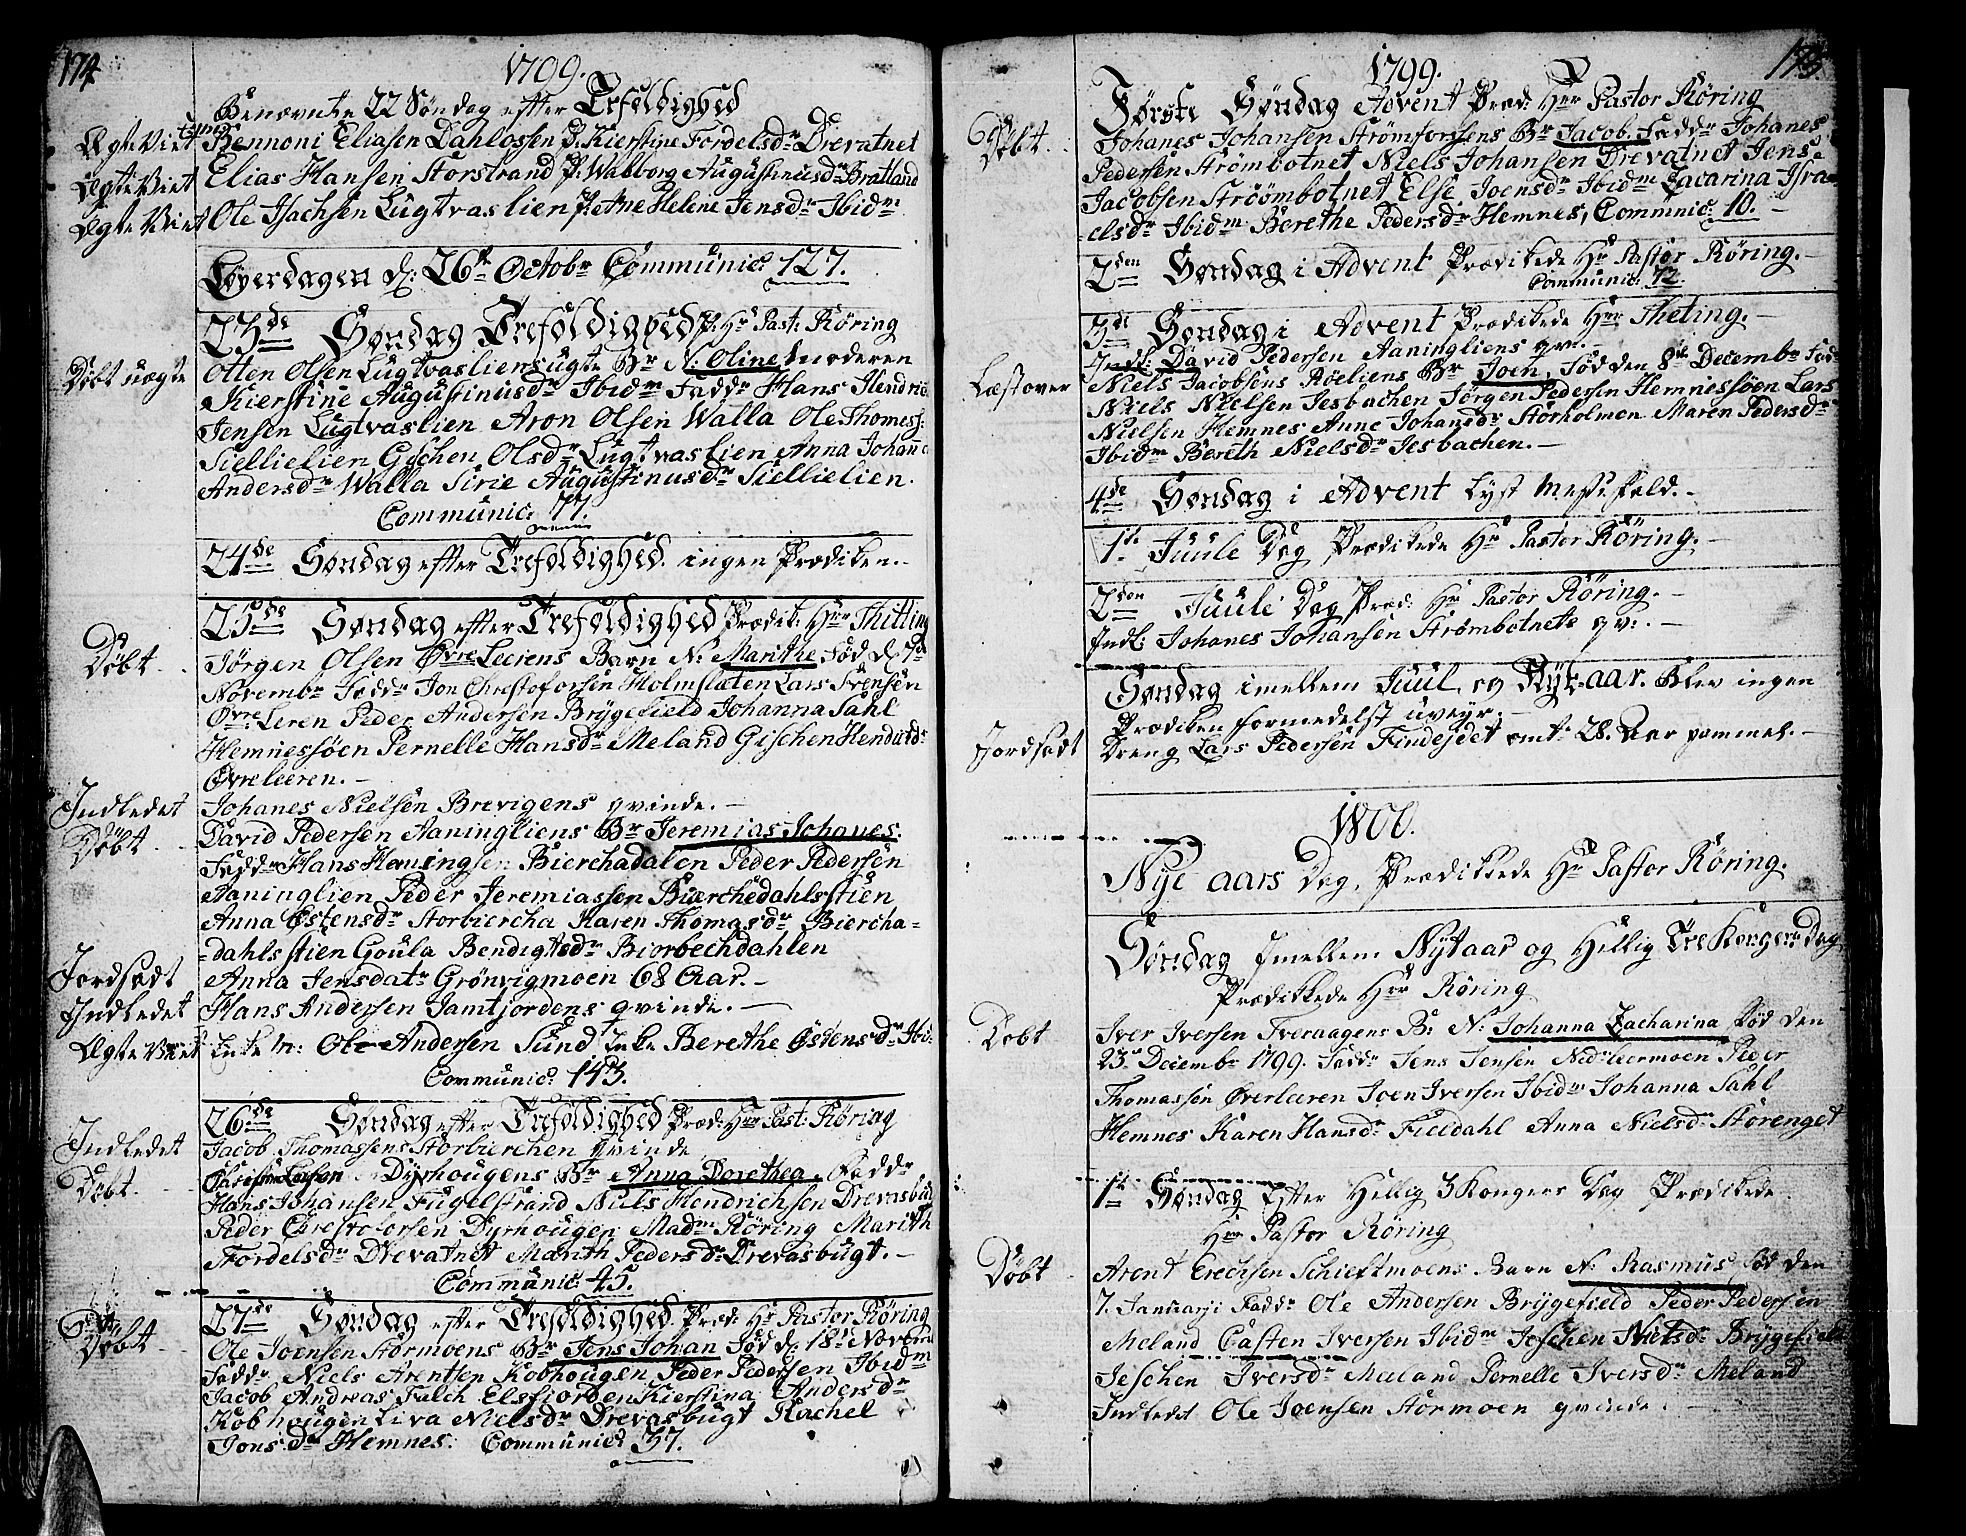 174
1799.
Benævnte 22 Søndag efter Trefoldighed
Ægte Viet Bennoni Eliasen Dahlossen P. Kierstine Fordelsdr Drevatnet
Ægte Viet Elias Hansen Storstrand P. Walborg Augustinusdr Bratland
Ægte Viet Ole Isachsen Lugtvaslien P. Ane Helene Jensdr Ibidm
Løverdagen d: 26de Octobr Communic: 127.
23de Søndag Trefoldighed P. Hr Past: Röring
Døbt uægte Otten Olsen Lugtvasliens uægte Br N. Oline Moderen
Kierstine Augustinusdr Ibidm Faddr Hans Hendric
Jensen Lugtvaslien Aron Olsen Walla Ole Thomess:
Siellielien Gischen Olsdr Lugtvaslien Anna Johanna
Andersdr Walla Sirie Augustinusdr Siellielien.
Communic: 77.
24de Søndag efter Trefoldighed. ingen Prædiken.
25de Søndag efter Trefoldighed Prædik: Hr Thitting
Døbt Jörgen Olsen Øvre Leeiens Barn N: Marithe Fød d. 7de
Novembr Faddr Jon Christofersen Holmslæten Lars Ivensen
Øvre Leren Peder Andersen Brygefield Johanna Sahl
Hemnessöen Pernelle Hansdr Meland Gischen Hendricdr
Øvreleeren.
Indledet Johanes Nielsen Brevigens qvinde.
Døbt David Pedersen Aaningliens Br Jeremias Johanes.
Faddr Hans Hemingsen Bierchadalen Peder Pedersen
Aaninglien Peder Jeremiassen Bierchedahlsstien
Anna Østensdr Storbiercha Karen Thomasdr Biercha-
-dahlsstien Goula Bendigtsdr Biorbechdahlen
Jordfæst Anna Jensdatr Grönvigmoen 68 Aar.
Indledet Hans Andersen Jamtjordens qvinde.
Ægte Viet Enke m: Ole Andersen Sund Enke Berethe Østensdr Ibi:
Communic: 143.
26de Søndag efter Trefoldighed Præd: Hr Past: Röring
Indledet Jacob Thomassens Storbierchen qvinde
Døbt Dyrhougens Br Anna Dorethea. Faddr
Hans Johansen Fugelstrand Niels Hendrichsen Drevasbugt
Peder Christofersen Dyrhougen Madm Röring Marith
Fordelsdr Drevatnet Marith Pedersdr Drevasbugt.
Communic: 45.
27de Søndag efter Trefoldighed. Præd: Hr Pastor Röring
Døbt Ole Joensen Stormoens Br Jens Johan Fød d: 18de Novembr
Faddr Niels Arentsen Kobhougen Peder Pedersen Ibidm
Jacob Andreas Falch Elsfiorden Kierstina Andersdr
Kobhougen Liva Nielsdr Drevasbugt Rachel
Jonsdr Hemnes. Communic: 37.
175
1799.
Første Søndag Advent Præd: Hr Pastor Röring
Døbt. Johanes Johansen Strömforssens Br Jacob. Faddr Johanes
Pedersen Strömbotnet Niels Johansen Drevatnet Jens
Jacobsen Ströömbotnet Else Joensdr Ibidm Zacarina Isra-
-elsdr Ibidm Berethe Pedersdr Hemnes, Communic: 10.
2den Søndag i Advent Prædikede Hr Pastor Röring.
Communic: 72.
3de Søndag i Advent Prædikede Hr Theting.
Indl: David Pedersen Aaningliens qv:
Læst over Niels Jacobsens Röeliens Br Joen, Fød den 8de Decembr Fadr
Niels Nielsen Jesbachen Jörgen Pedersen Hemnessöen Lars
Nielsen Hemnes Anne Johansdr Storholmen Maren Pedersdr
Ibidm Bereth Nielsdr Jesbachen.
4de Søndag i Advent Lyst Messefald.
1ste Juule Dag Prædikede Hr Pastor Röring.
2den Juule Dag Præd: Hr Pastor Röring.
Indl: Johanes Johansen Strömbotnets qv:
Søndag imellem Juul og Nyt-aar. Blev ingen
Prædiken formedelst uveyr.
Jordfæst Dreng Lars Pedersen Findejdet omt: 28. Aar gammel.
1800.
Nye aars Dag, Prædikede Hr Pastor Röring.
Søndag Imellem Nytaar og Hellig Tre Kongers Dag
Prædikede Hr Röring
Døbt Iver Iversen Tveraagens B: N: Johanna Zacharina Fød den
23de Decembr 1799. Faddr Jens Jensen Nedrleermoen Peder
Thomassen Øverleeren Joen Iversen Ibidm Johanna Sahl
Hemnes Karen Hansdr Fieldahl Anna Nielsdr Storenget
1ste Søndag Efter Hellig 3 Kongers Dag Prædikede
Hr Pastor Röring
Døbt Arent Erechsen Schieftmoens Barn N: Rasmus Fød den
7. Januarj Faddr Ole Andersen Brygefield Peder Pedersen
Meland Casten Iversen Ibidm Jeschen Nielsdr Brygefield
Jeschen Iversdr Meland Pernelle Iversdr Meland
Indledet Ole Joensen Stormoen qvinde.